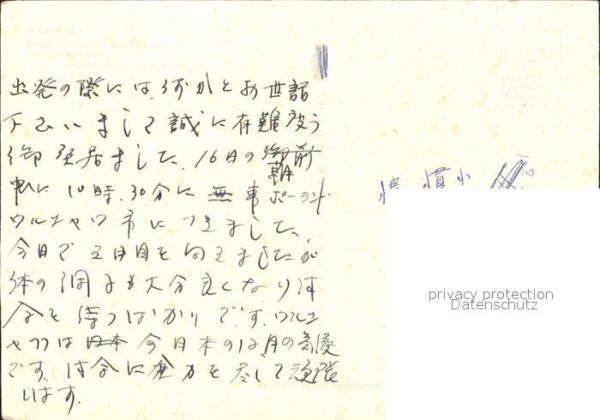 出発の際には、何かとお世話
下さいまして誠に有難度う
御座居ました。16日の御前
中に10時.30分に無事ポーランド
ワルシャワ市につきました。
今日で三日目を向えましたが
体の調子も大分良くなり試
合を待つばかりです。ワルシ
ャワは今日本の12月の気候
です。試合に全力を尽して頑張
います。
privacy protection
Datenschutz